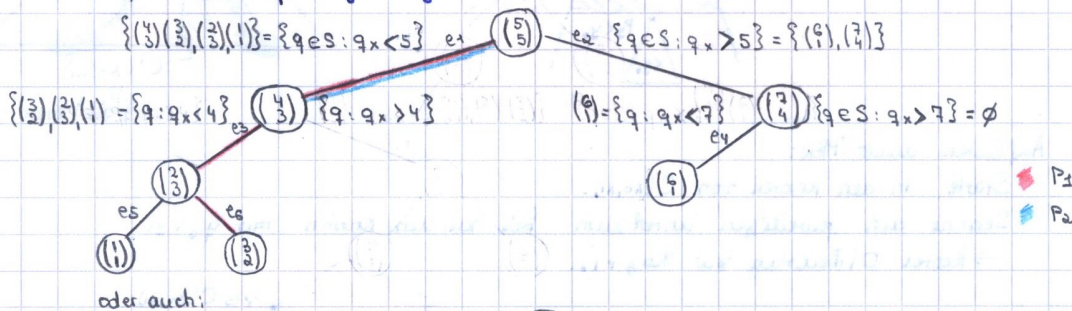 {(4 3)(3 2),(2 3),(1 1)} = {q∈S : qx<5} e1 (5 5) e2 {q∈S : qx>5} = {(6 1),(7 4)}
{(3 2),(2 3),(1 1) = {q : qx<4} e3 (4 3) {q : qx>4} (6 1) = {q : qx<7} e4 (7 4) {q∈S : qx>7} = ∅
(2 3) (6 1) P1
e5 e6 P2
(1 1) (3 2)
oder auch: